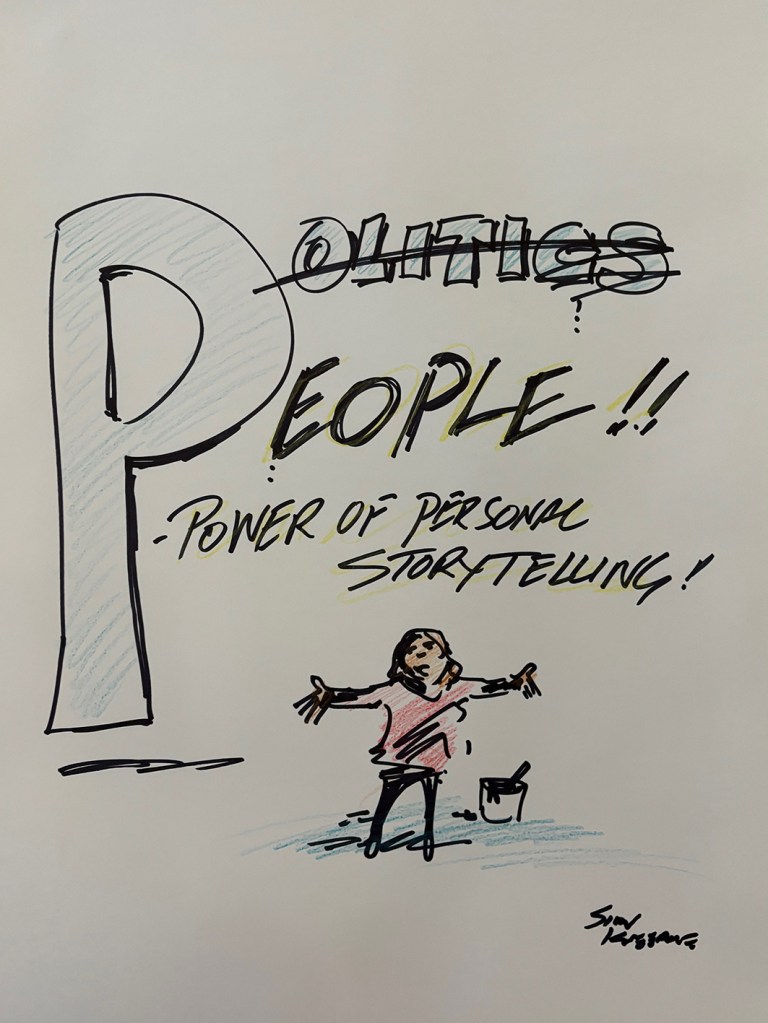 POLITICS
PEOPLE!!
- POWER OF PERSONAL
STORYTELLING!